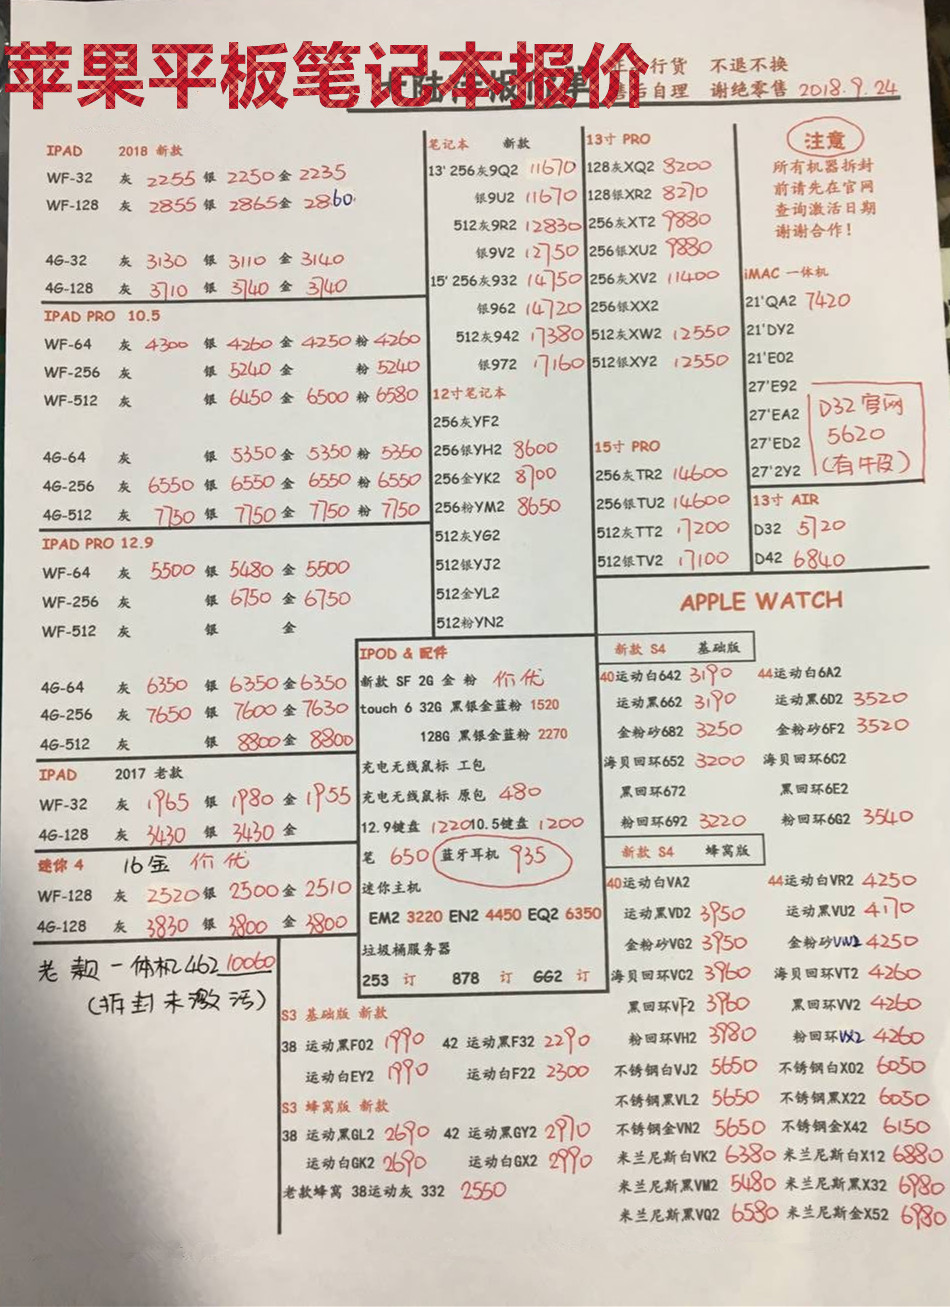 苹果平板笔记本报价
正 行货 不退不换
售后自理 谢绝零售 2018.9.24
IPAD 2018 新款
WF-32 灰 2255 银 2250 金 2235
WF-128 灰 2855 银 2865 金 2860
4G-32 灰 3130 银 3110 金 3140
4G-128 灰 3710 银 3740 金 3740
IPAD PRO 10.5
WF-64 灰 4300 银 4260 金 4250 粉 4260
WF-256 灰 银 5240 金 粉 5240
WF-512 灰 银 6450 金 6500 粉 6580
4G-64 灰 银 5350 金 5350 粉 5350
4G-256 灰 6550 银 6550 金 6550 粉 6550
4G-512 灰 7750 银 7750 金 7750 粉 7750
IPAD PRO 12.9
WF-64 灰 5500 银 5480 金 5500
WF-256 灰 银 6750 金 6750
WF-512 灰 银 金
4G-64 灰 6350 银 6350 金 6350
4G-256 灰 7650 银 7600 金 7630
4G-512 灰 银 8800 金 8800
IPAD 2017 老款
WF-32 灰 1965 银 1980 金 1955
4G-128 灰 3430 银 3430 金
迷你 4 16金 价优
WF-128 灰 2520 银 2500 金 2510
4G-128 灰 3830 银 3800 金 3800
老款一体机462 10060
(拆封未激活)
笔记本 新款
13' 256灰9Q2 11670
银9U2 11670
512灰9R2 12830
银9V2 12750
15' 256灰932 14750
银962 14720
512灰942 17380
银972 17160
12寸笔记本
256灰YF2
256银YH2 8600
256金YK2 8700
256粉YM2 8650
512灰YG2
512银YJ2
512金YL2
512粉YN2
13寸 PRO
128灰XQ2 8200
128银XR2 8270
256灰XT2 9880
256银XU2 9880
256灰XV2 11400
256银XX2
512灰XW2 12550
512银XY2 12550
15寸 PRO
256灰TR2 14600
256银TU2 14600
512灰TT2 17200
512银TV2 17100
注意
所有机器拆封
前请先在官网
查询激活日期
谢谢合作!
iMAC 一体机
21'QA2 7420
21'DY2
21'E02
27'E92
27'EA2
27'ED2
27'2Y2
D32 官网
5620
(有牛皮)
13寸 AIR
D32 5720
D42 6840
IPOD & 配件
新款 SF 2G 金 粉 价优
touch 6 32G 黑银金蓝粉 1520
128G 黑银金蓝粉 2270
充电无线鼠标 工包
充电无线鼠标 原包 480
12.9键盘 1220 10.5键盘 1200
笔 650 蓝牙耳机 935
迷你主机
EM2 3220 EN2 4450 EQ2 6350
垃圾桶服务器
253 订 878 订 GG2 订
S3 基础版 新款
38 运动黑F02 1990 42 运动黑F32 2290
运动白EY2 1990 运动白F22 2300
S3 蜂窝版 新款
38 运动黑GL2 2690 42 运动黑GY2 2970
运动白GK2 2690 运动白GX2 2990
老款蜂窝 38运动灰 332 2550
APPLE WATCH
新款 S4 基础版
40运动白642 3190 44运动白6A2
运动黑662 3190 运动黑6D2 3520
金粉砂682 3250 金粉砂6F2 3520
海贝回环652 3200 海贝回环6C2
黑回环672 黑回环6E2
粉回环692 3220 粉回环6G2 3540
新款 S4 蜂窝版
40运动白VA2 44运动白VR2 4250
运动黑VD2 3950 运动黑VU2 4170
金粉砂VG2 3950 金粉砂VW2 4250
海贝回环VC2 3960 海贝回环VT2 4260
黑回环VF2 3960 黑回环VV2 4260
粉回环VH2 3980 粉回环VX2 4260
不锈钢白VJ2 5650 不锈钢白X02 6050
不锈钢黑VL2 5650 不锈钢黑X22 6050
不锈钢金VN2 5650 不锈钢金X42 6150
米兰尼斯白VK2 6380 米兰尼斯白X12 6880
米兰尼斯黑VM2 5480 米兰尼斯黑X32 6980
米兰尼斯黑VQ2 6580 米兰尼斯金X52 6980